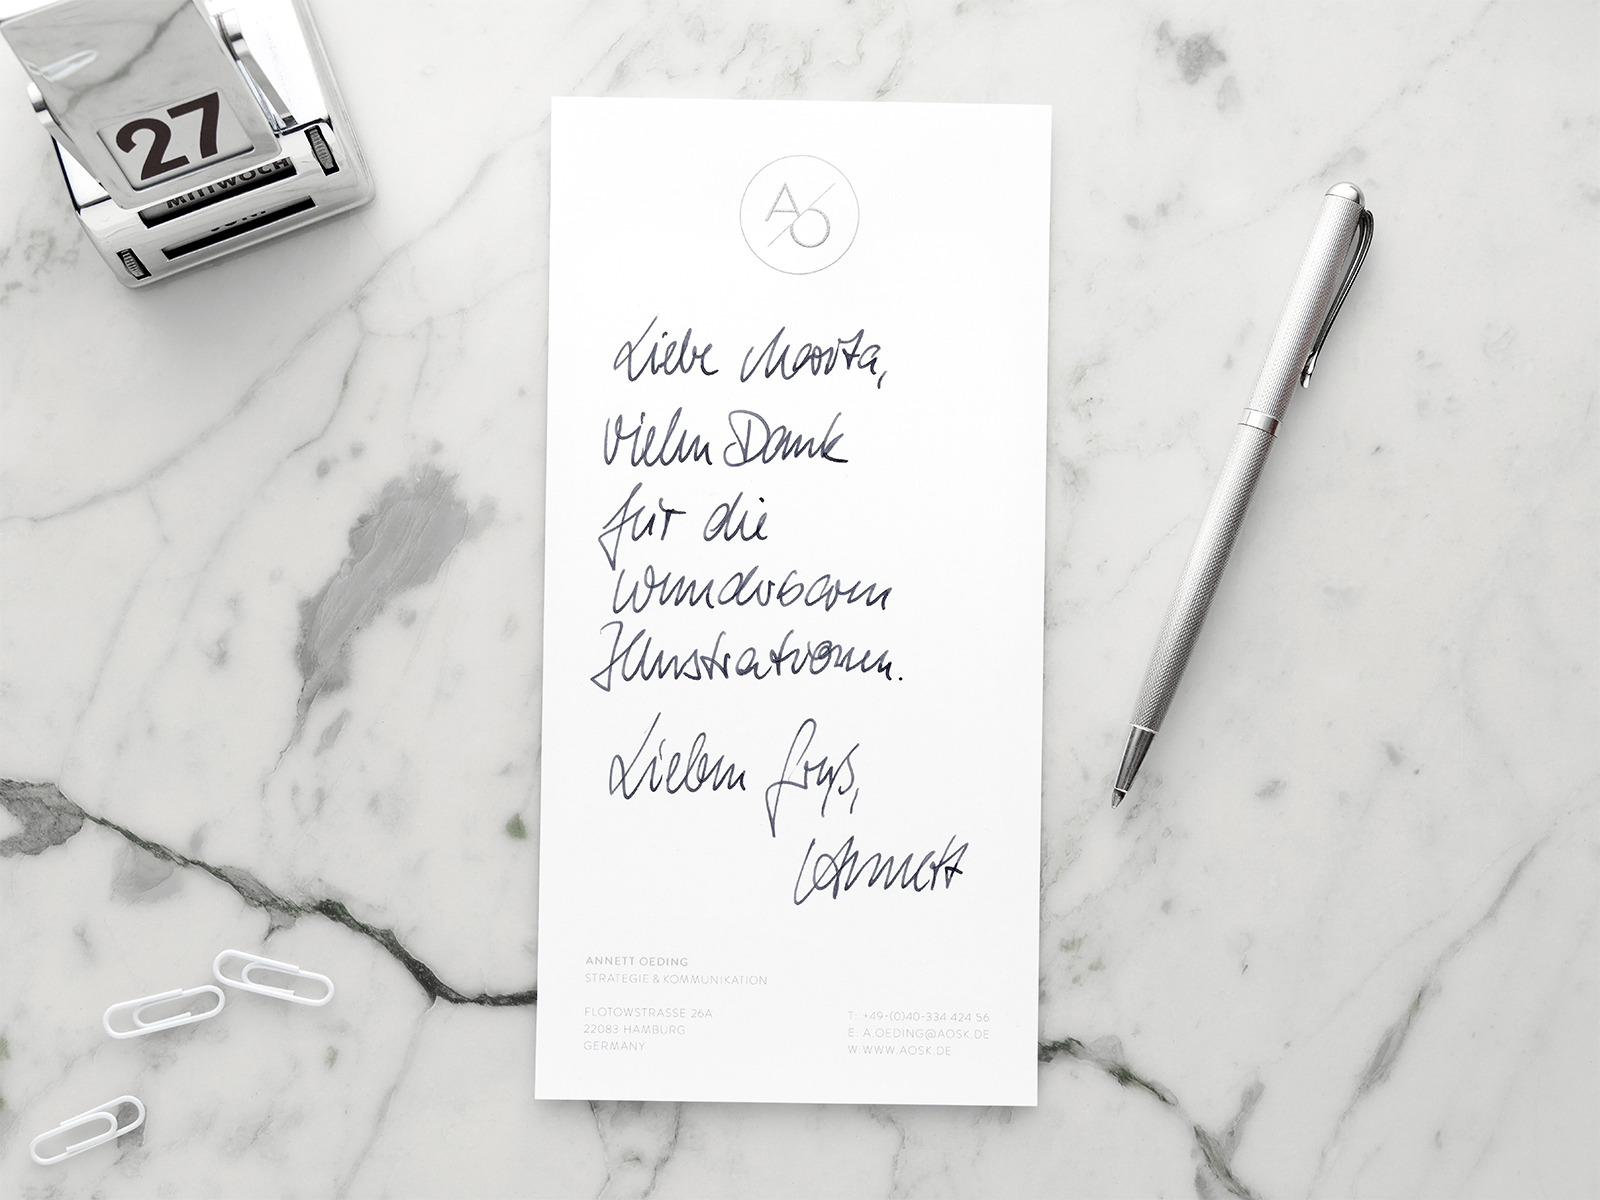 27
MITTWOCH
A/O
Liebe Marita,
vielen Dank
für die
wunderbaren
Illustrationen.
Lieben Gruß,
Annett
ANNETT OEDING
STRATEGIE & KOMMUNIKATION
FLOTOWSTRASSE 26A
22083 HAMBURG
GERMANY
T: +49-(0)40-334 424 56
E: A.OEDING@AOSK.DE
W: WWW.AOSK.DE